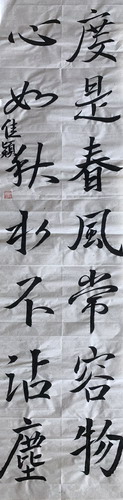 度是春風常容物
心如秋水不沾塵
佳穎